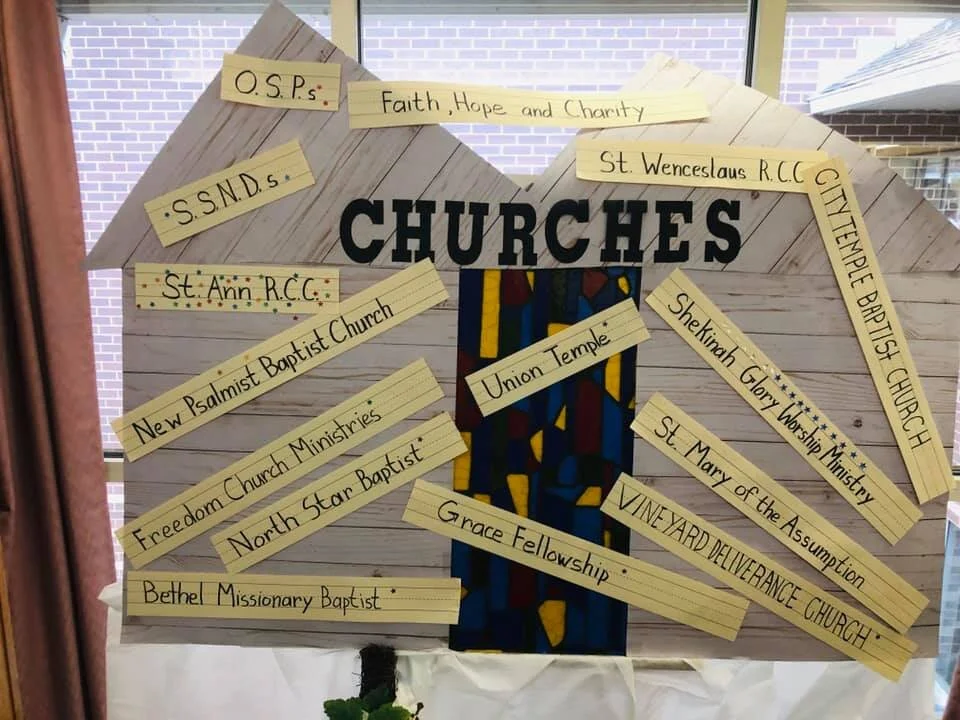 O.S.P.s.
Faith, Hope and Charity
St. Wenceslaus R.C.C.
S.S.N.D.s
CITY TEMPLE BAPTIST CHURCH
CHURCHES
St. Ann R.C.C.
New Psalmist Baptist Church
Union Temple
Shekinah Glory Worship Ministry
Freedom Church Ministries
North Star Baptist
St. Mary of the Assumption
Grace Fellowship
VINEYARD DELIVERANCE CHURCH
Bethel Missionary Baptist